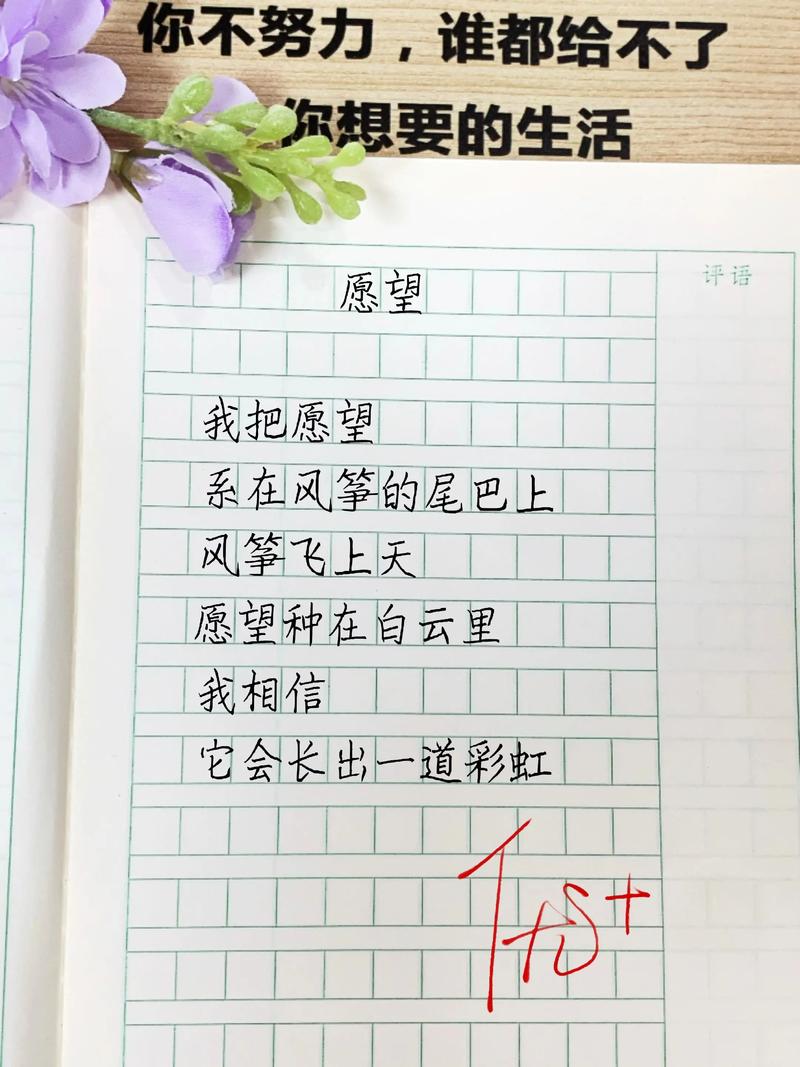 你不努力，谁都给不了
你想要的生活
评语
愿望
我把愿望
系在风筝的尾巴上
风筝飞上天
愿望种在白云里
我相信
它会长出一道彩虹
优+